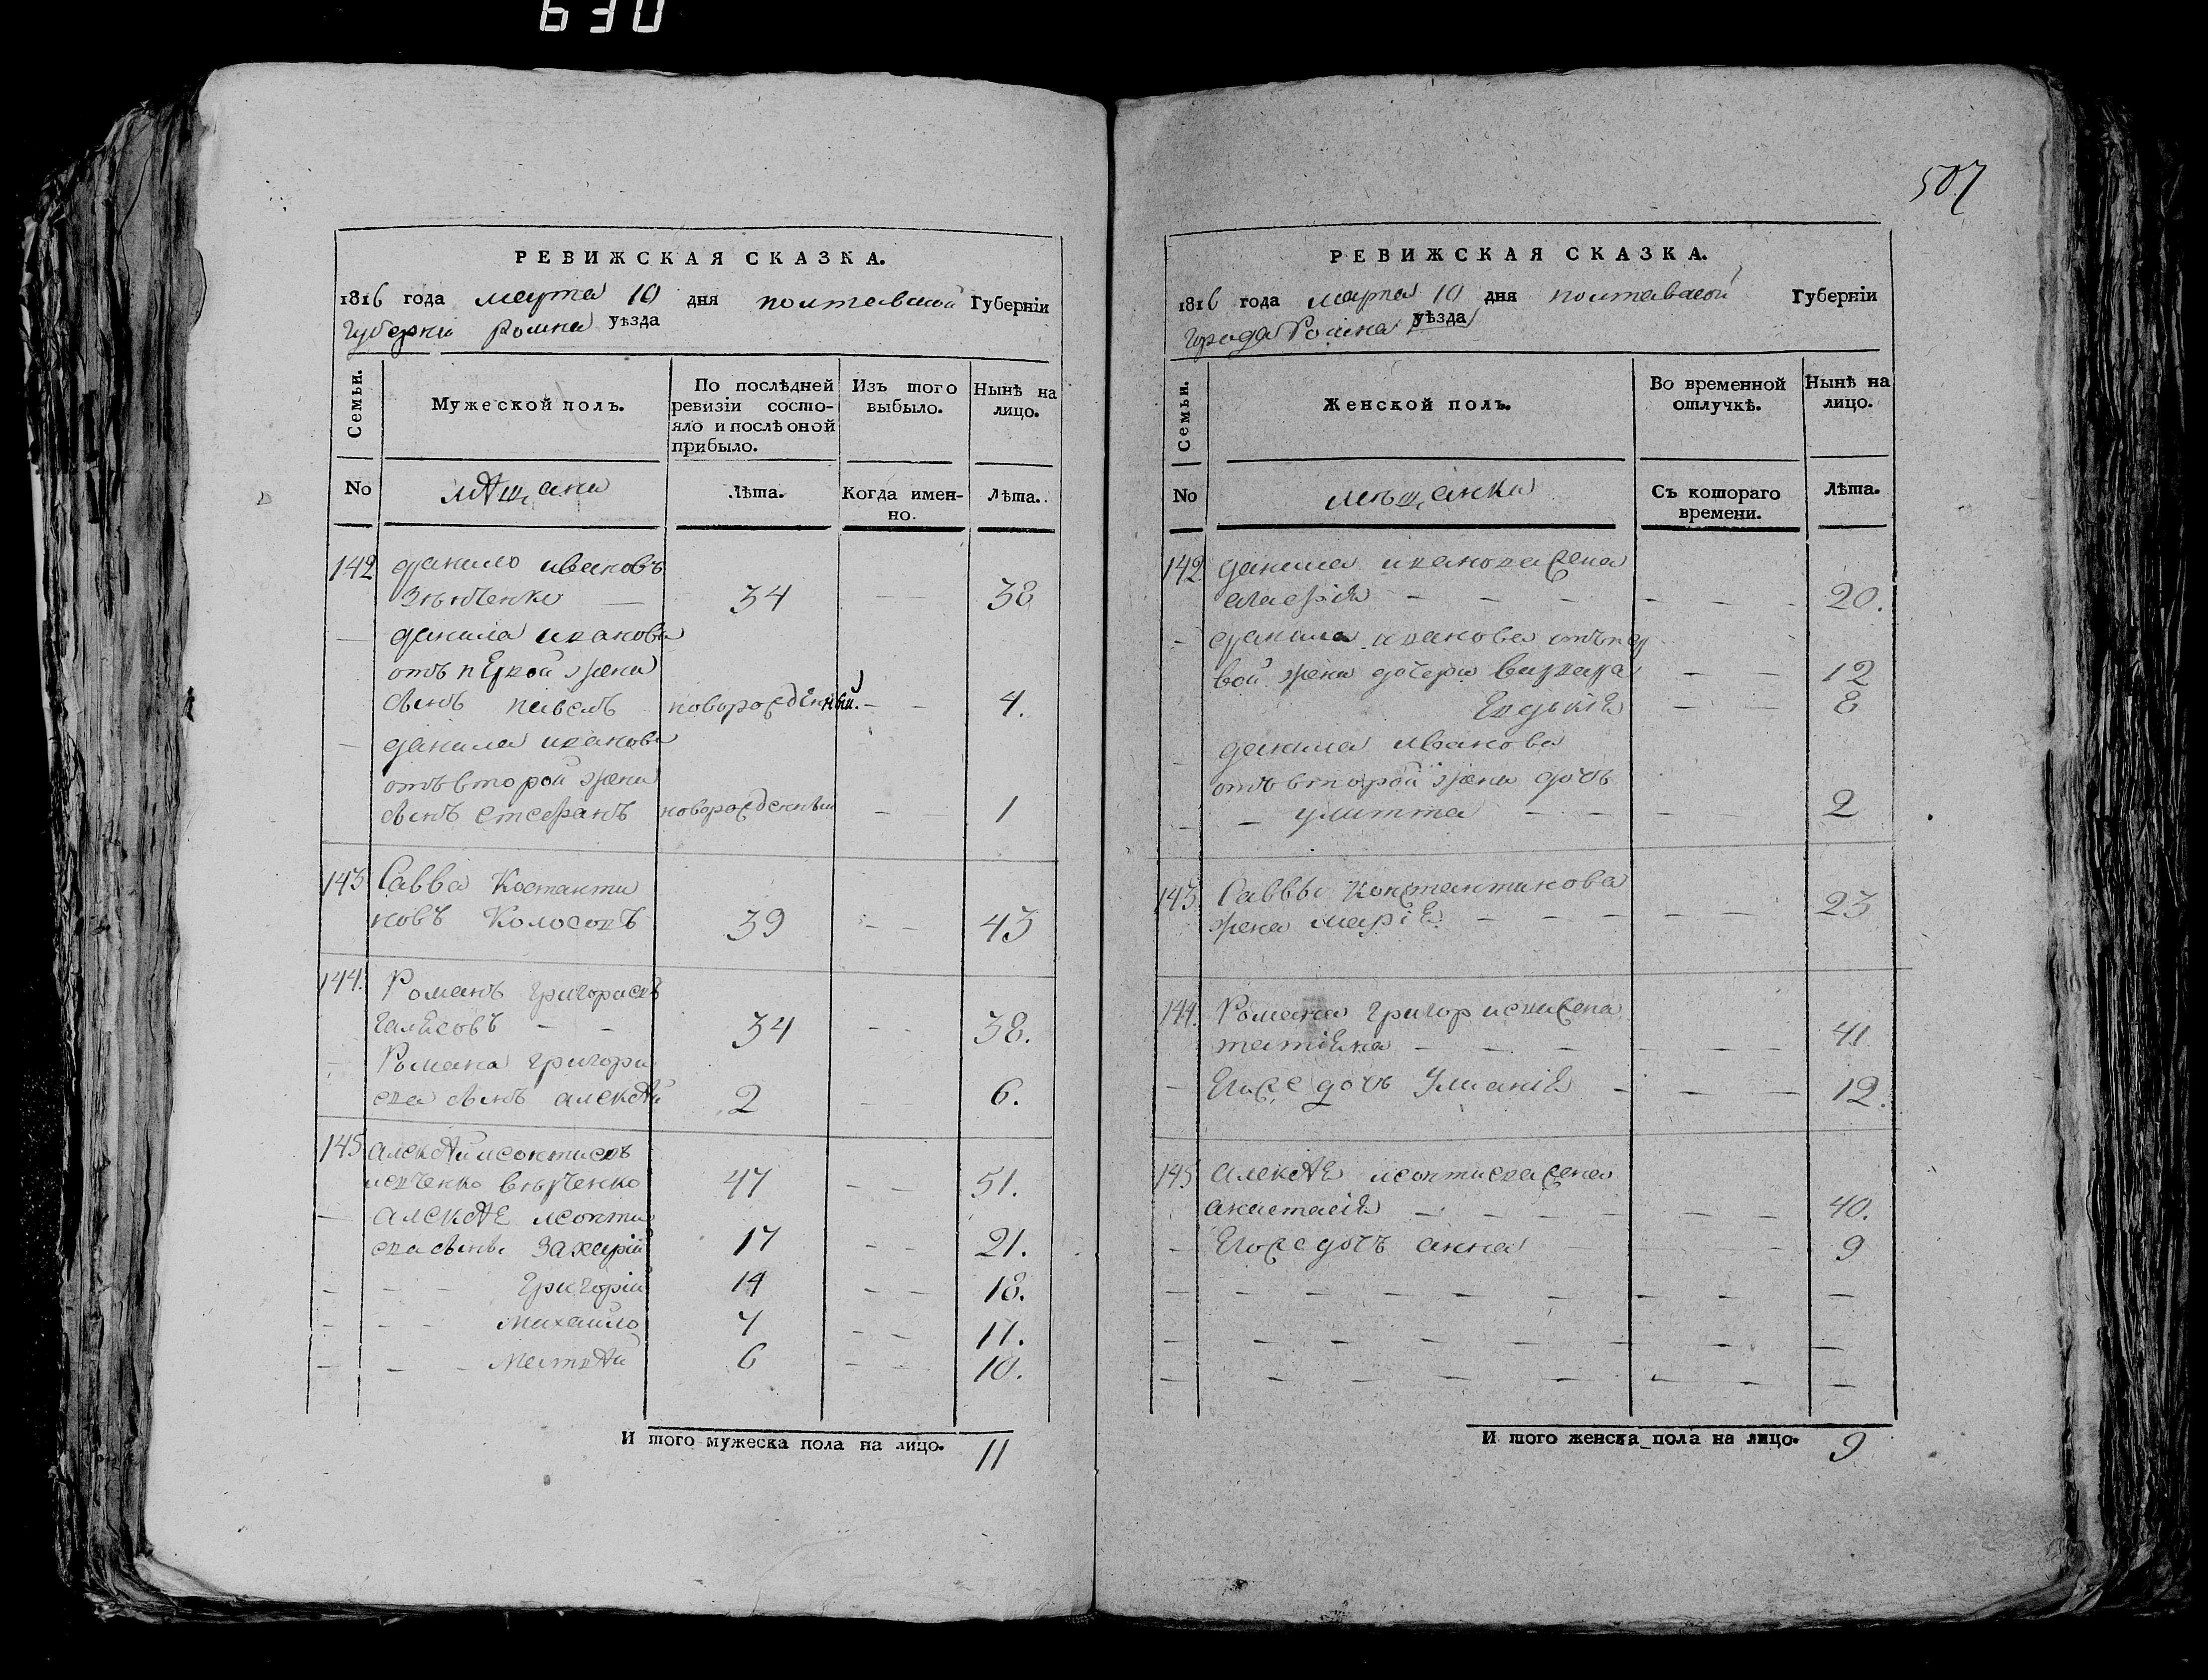 630
507
РЕВИЖСКАЯ СКАЗКА.
1816 года марта 10 дня полтавской Губерніи
Губерни Ромна уѣзда
Семьи.
Мужеской полъ.
По послѣдней ревизіи состо-
яло и послѣ оной
прибыло.
Изъ того выбыло.
Нынѣ на лицо.
No
мѣщани
Лѣта.
Когда имен-
но.
Лѣта.
142 данило ивановъ
34 38
данила иванова
отъ первой жени
сынъ павелъ новорожденный. - - 4.
данила иванова
отъ второй жени
сынъ стефанъ новорожденный - - 1
143 Савва Костанти
новъ Колосовъ 39 - - 43
144. Романъ григориевъ
- - 34 - - 38.
Романа григори
ева сынъ алексѣй 2 - 6.
145 алексѣй леонтиевъ
47 - - 51.
алексѣя леонти
ева сыны Захарій 17 - - 21.
- - - григорій 14 - - 18.
- - - михайло 7 - - 11.
- - - матвѣй 6 - - 10.
И того мужеска пола на лицо. 11
РЕВИЖСКАЯ СКАЗКА.
1816 года марта 10 дня полтавской Губерніи
города Ромна уѣзда
Семьи.
Женской полъ.
Во временной отлучкѣ.
Нынѣ на лицо.
No
мѣщанки
Съ котораго времени.
Лѣта.
142 данила иванова жена
- - - - - - 20.
данила иванова отъ пер
вой жени дочери варвара - - 12
Евдокія - - 8
данила иванова
отъ второй жени дочь
- улитта - - - - 2
143. Саввы константинова
жена марія - - - - - - 23
144. Романа григориева жена
татіяна - - - - - 41
Егоже дочь Улианія - - - 12.
145 алексѣя леонтиева жена
анастасія - - - - - - - 40.
Егоже дочъ анна - - - 9
И того женска пола на лицо. 9